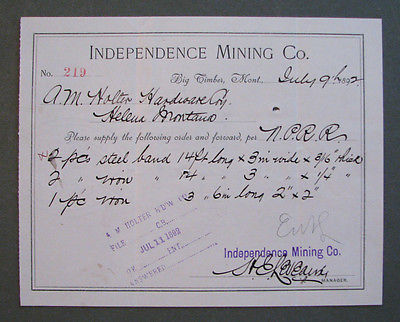 INDEPENDENCE MINING CO.
No. 219 Big Timber, Mont., July 9th 1892
A.M. Holter Hardware Co,
Helena Montana.
Please supply the following order and forward, per N.P.R.R
2 pc's steel band 14ft long x 3 in wide x 3/16" thick
2 " iron " 14 " 3 " x 1/4 " "
1 pc iron 3 " 6 in long 2" x 2"
A M HOLTER HDW CO
FILE CS.
JUL 11 1892
ENT.
ANSWERED
Independence Mining Co.
MANAGER.